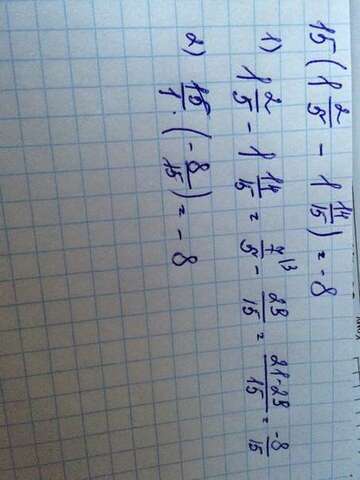 15 (1 2/5 - 1 14/15) = -8
1) 1 2/5 - 1 14/15 = 7/5 \3 - 29/15 = 21-29/15 = -8/15
2) 15/1 · (-8/15) = -8